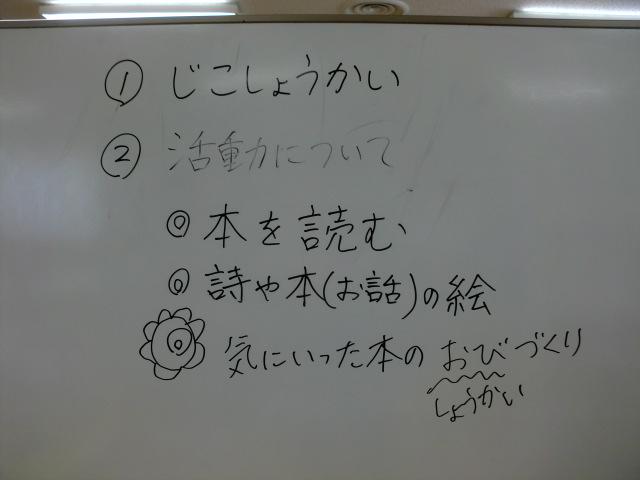 ① じこしょうかい
② 活動力について
◎ 本を読む
◎ 詩や本(お話)の絵
◎ 気にいった本のおびづくり
しょうかい